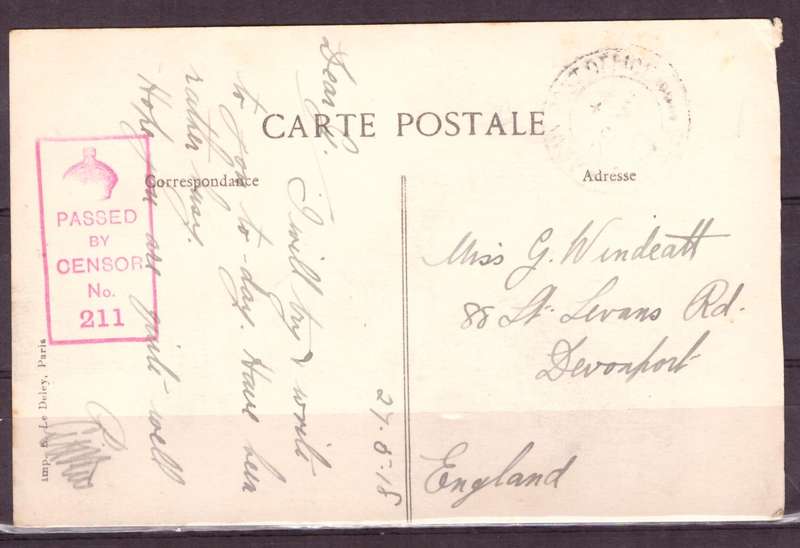 CARTE POSTALE
Correspondance
Adresse
PASSED
BY
CENSOR
No.
211
Imp. E. Le Deley, Paris
27-8-18
Dear G. I will try & write
to you to-day. Have been
rather busy.
Hope you are quite well
P.
Miss G. Windeatt
88 St. Levans Rd.
Devonport
England
POST OFFICE